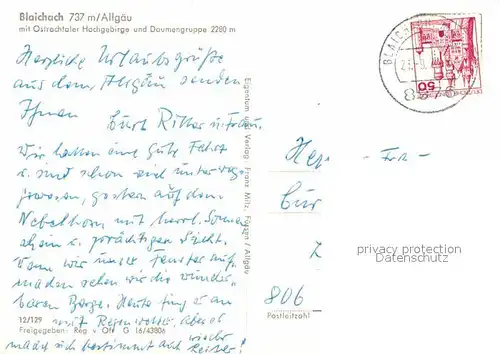 Blaichach 737 m/Allgäu
mit Ostrachtaler Hochgebirge und Daumengruppe 2280 m
Herzliche Urlaubsgrüße
aus dem Allgäu senden
Ihnen
Curt Ritter u. Frau.
Wir hatten eine gute Fahrt
u. sind schon viel unterwegs
gewesen, gestern auf dem
Nebelhorn mit herrl. Sonnen
schein u. prächtiger Sicht.
Wenn wir unser Fenster auf-
machen sehen wir die wunder-
baren Berge. Heute fing es an
mit Regenwetter, aber es
wieder
macht sich bestimmt
12/129
Freigegeben: Reg v. Obb G 16/43806
Eigentum und Verlag Franz Milz, Füssen / Allgäu
BLAICH
8976
50
Fr
Cur
806
Postleitzahl
privacy protection
Datenschutz